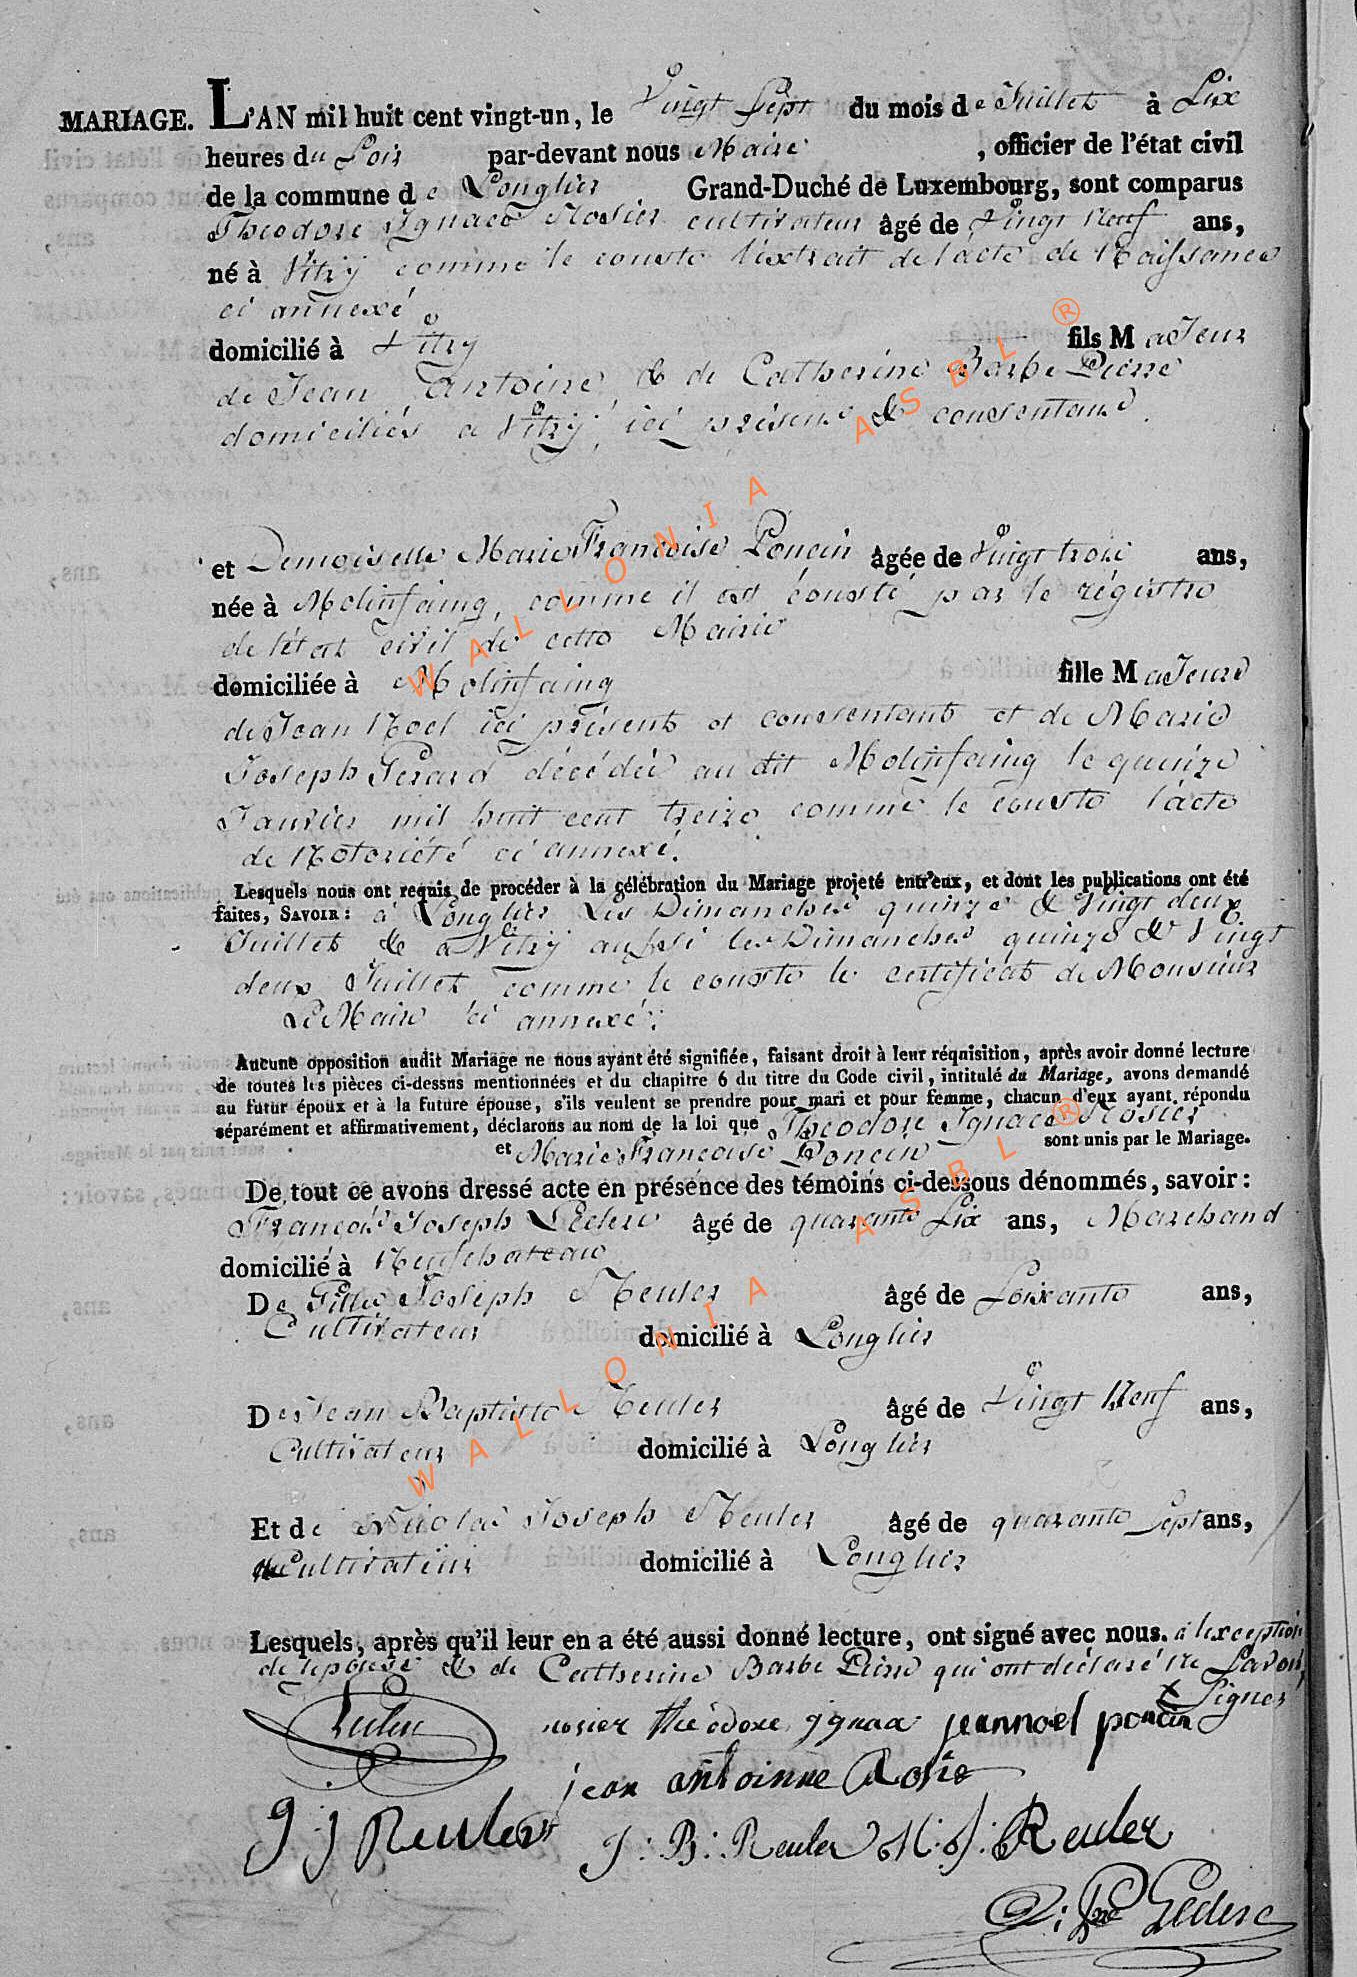 MARIAGE. L'AN mil huit cent vingt-un, le Vingt Sept du mois de Juillet à Six
heures du Soir par-devant nous Maire , officier de l'état civil
de la commune de Longlier Grand-Duché de Luxembourg, sont comparus
Theodore Ignace Rosier cultivateur âgé de Vingt Neuf ans,
né à Vitry comme le conste l'extrait de l'acte de Naissance
ci annexé
domicilié à Vitry fils MaJeur
de Jean Antoine & de Catherine Barbe Pierre
domiciliés a Vitry ici présens & consentans.
et Demoiselle Marie Françoise Poncin âgée de Vingt trois ans,
née à Molinfaing, comme il est consté par le régistre
de l'état civil de cette Mairie
domiciliée à Molinfaing fille MaJeure
de Jean Noel ici présent et consentant et de Marie
Joseph Gerard décédée au dit Molinfaing le quinze
Janvier mil huit cent treize comme le conste l'acte
de Notoriété ci annexé.
Lesquels nous ont requis de procéder à la célébration du Mariage projeté entr'eux, et dont les publications ont été
faites, SAVOIR : à Longlier les Dimanches quinze & Vingt deux
Juillet & a Vitry aussi les Dimanches quinze & Vingt
deux Juillet comme le conste le certificat de Monsieur
Le Maire ici annexé.
Aucune opposition audit Mariage ne nous ayant été signifiée, faisant droit à leur réquisition, après avoir donné lecture
de toutes les pièces ci-dessus mentionnées et du chapitre 6 du titre du Code civil, intitulé du Mariage, avons demandé
au futur époux et à la future épouse, s'ils veulent se prendre pour mari et pour femme, chacun d'eux ayant répondu
séparément et affirmativement, déclarons au nom de la loi que Theodore Ignace Rosier
et Marie Françoise Poncin sont unis par le Mariage.
De tout ce avons dressé acte en présence des témoins ci-dessous dénommés, savoir :
François Joseph Leclerc âgé de quarante Six ans, Marchand
domicilié à Neufchateau
De Gille Joseph Reuler âgé de Soixante ans,
Cultivateur domicilié à Longlier
De Jean Baptiste Reuler âgé de Vingt Neuf ans,
Cultivateur domicilié à Longlier
Et de Nicolas Joseph Reuler âgé de quarante Sept ans,
Cultivateur domicilié à Longlier
Lesquels, après qu'il leur en a été aussi donné lecture, ont signé avec nous. à l'exception
de l'épouse & de Catherine Barbe Pierre qui ont déclaré ne Savoir
Signer
rosier théodore ignace jeannoel poncin
jean antoinne Rosie
g j Reuler J: B: Reuler N: J: Reuler
Leclerc
WALLONIA ASBL ®
WALLONIA ASBL ®